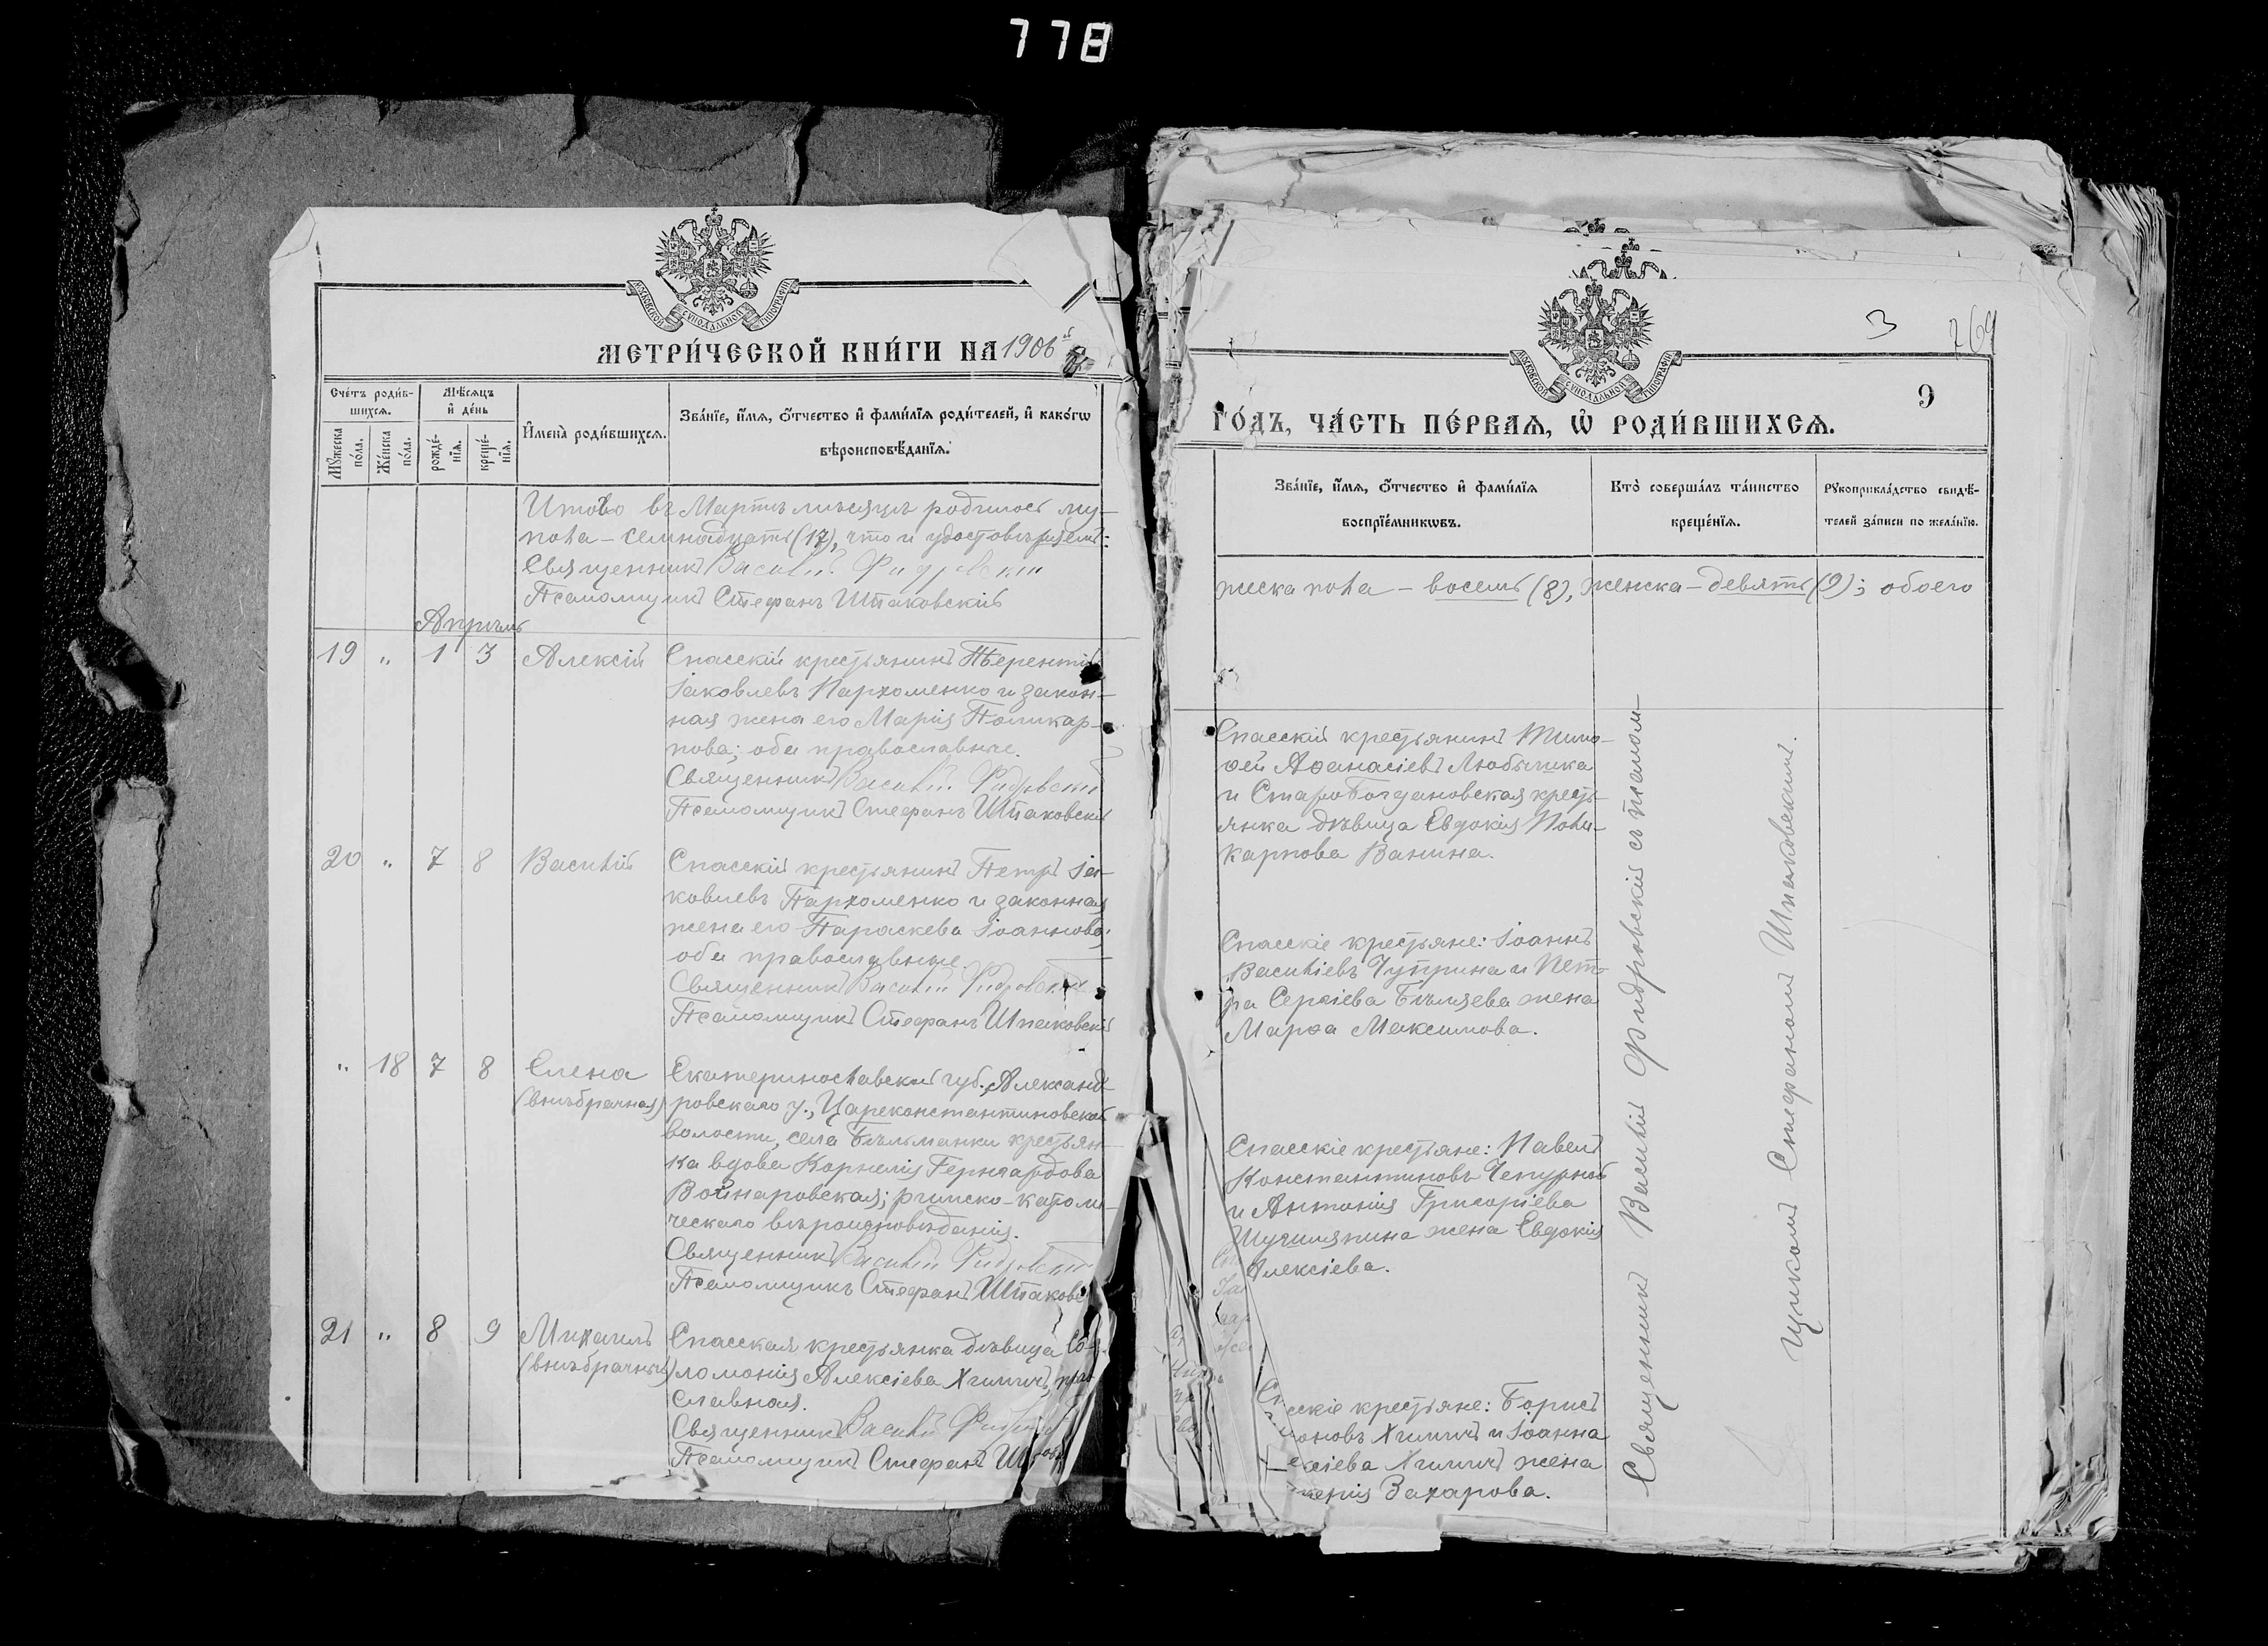 778
МОСКОВСКОЙ СѴНОДАЛЬНОЙ ТИПОГРАФІИ
МЕТРИ́ЧЕСКОЙ КНИ́ГИ НА 1906й
Сче́тъ роди́в-
шихсѧ.
Мѣ́сѧцъ
и҆ де́нь
Мꙋ́жеска
по́ла.
Же́нска
по́ла.
рожде́-
нїѧ.
креще́-
нїѧ.
И҆мена̀ роди́вшихсѧ.
Зва́нїе, и҆́мѧ, ѻ҆́тчество и҆ фами́лїѧ роди́телей, и҆ како́гѡ
вѣроисповѣ́данїѧ.
Итого въ Мартѣ мѣсяцѣ родилось му-
пола – семнадцать (17), что и удостовѣряемъ:
Священникъ Василій Фидровскій
Псаломщикъ Стефанъ Шпаковскій
Апрѣль
19 „ 1 3 Алексій
Спасскій крестьянинъ Терентій
Іаковлевъ Пархоменко и закон-
ная жена его Марія Поликар-
пова; оба православные.
Священникъ Василій Фидровскій
Псаломщикъ Стефанъ Шпаковскій
20 „ 7 8 Василій
Спасскій крестьянинъ Петръ Іа-
ковлевъ Пархоменко и законная
жена его Параскева Іоаннова;
оба православные.
Священникъ Василій Фидровскій
Псаломщикъ Стефанъ Шпаковскій
„ 18 7 8 Елена
(внѣбрачная)
Екатеринославской губ., Александ-
ровскаго у., Цареконстантиновской
волости, села Бѣльманки крестьян-
ка вдова Корнелія Герн­гардова
Войнаровская; римско-католи-
ческаго вѣроисповѣданія.
Священникъ Василій Фидровскій
Псаломщикъ Стефанъ Шпаковс
21 „ 8 9 Михаилъ
(внѣбрачный)
Спасская крестьянка дѣвица Со-
ломонія Алексіева Химичъ, пра-
славная.
Священникъ Василій
Псаломщикъ Стефанъ
3 769
МОСКОВСКОЙ СѴНОДАЛЬНОЙ ТИПОГРАФІИ
9
ГО́ДЪ, ЧА́СТЬ ПЕ́РВАѦ, Ѡ҆ РОДИ́ВШИХСѦ.
Зва́нїе, и҆́мѧ, ѻ҆́тчество и҆ фами́лїѧ
воспрїе́мникѡвъ.
Кто̀ соверша́лъ та́инство
креще́нїѧ.
Рꙋкоприкла́дство свидѣ́-
телей за́писи по жела́нїю.
жеска пола – восемь (8), женска – девять (9); обоего
Спасскій крестьянинъ Тимо-
ѳей Аѳанасіевъ Любымка
и СтароБогдановская кресть-
янка дѣвица Евдокія Поли-
карпова Ванина.
Спасскіе крестьяне: Іоаннъ
Василіевъ Чуприна и Пет-
ра Сергіева Бѣляева жена
Марѳа Максимова.
Спасскіе крестьяне: Павелъ
Константиновъ Чепурной
и Антонія Григоріева
Шушляпина жена Евдокія
Алексіева.
сскіе крестьяне: Борисъ
оновъ Химичъ и Іоанна
ексіева Химичъ жена
Захарова.
Священникъ Василій Фидровскій съ псалом-
щикомъ Стефаномъ Шпаковскимъ.